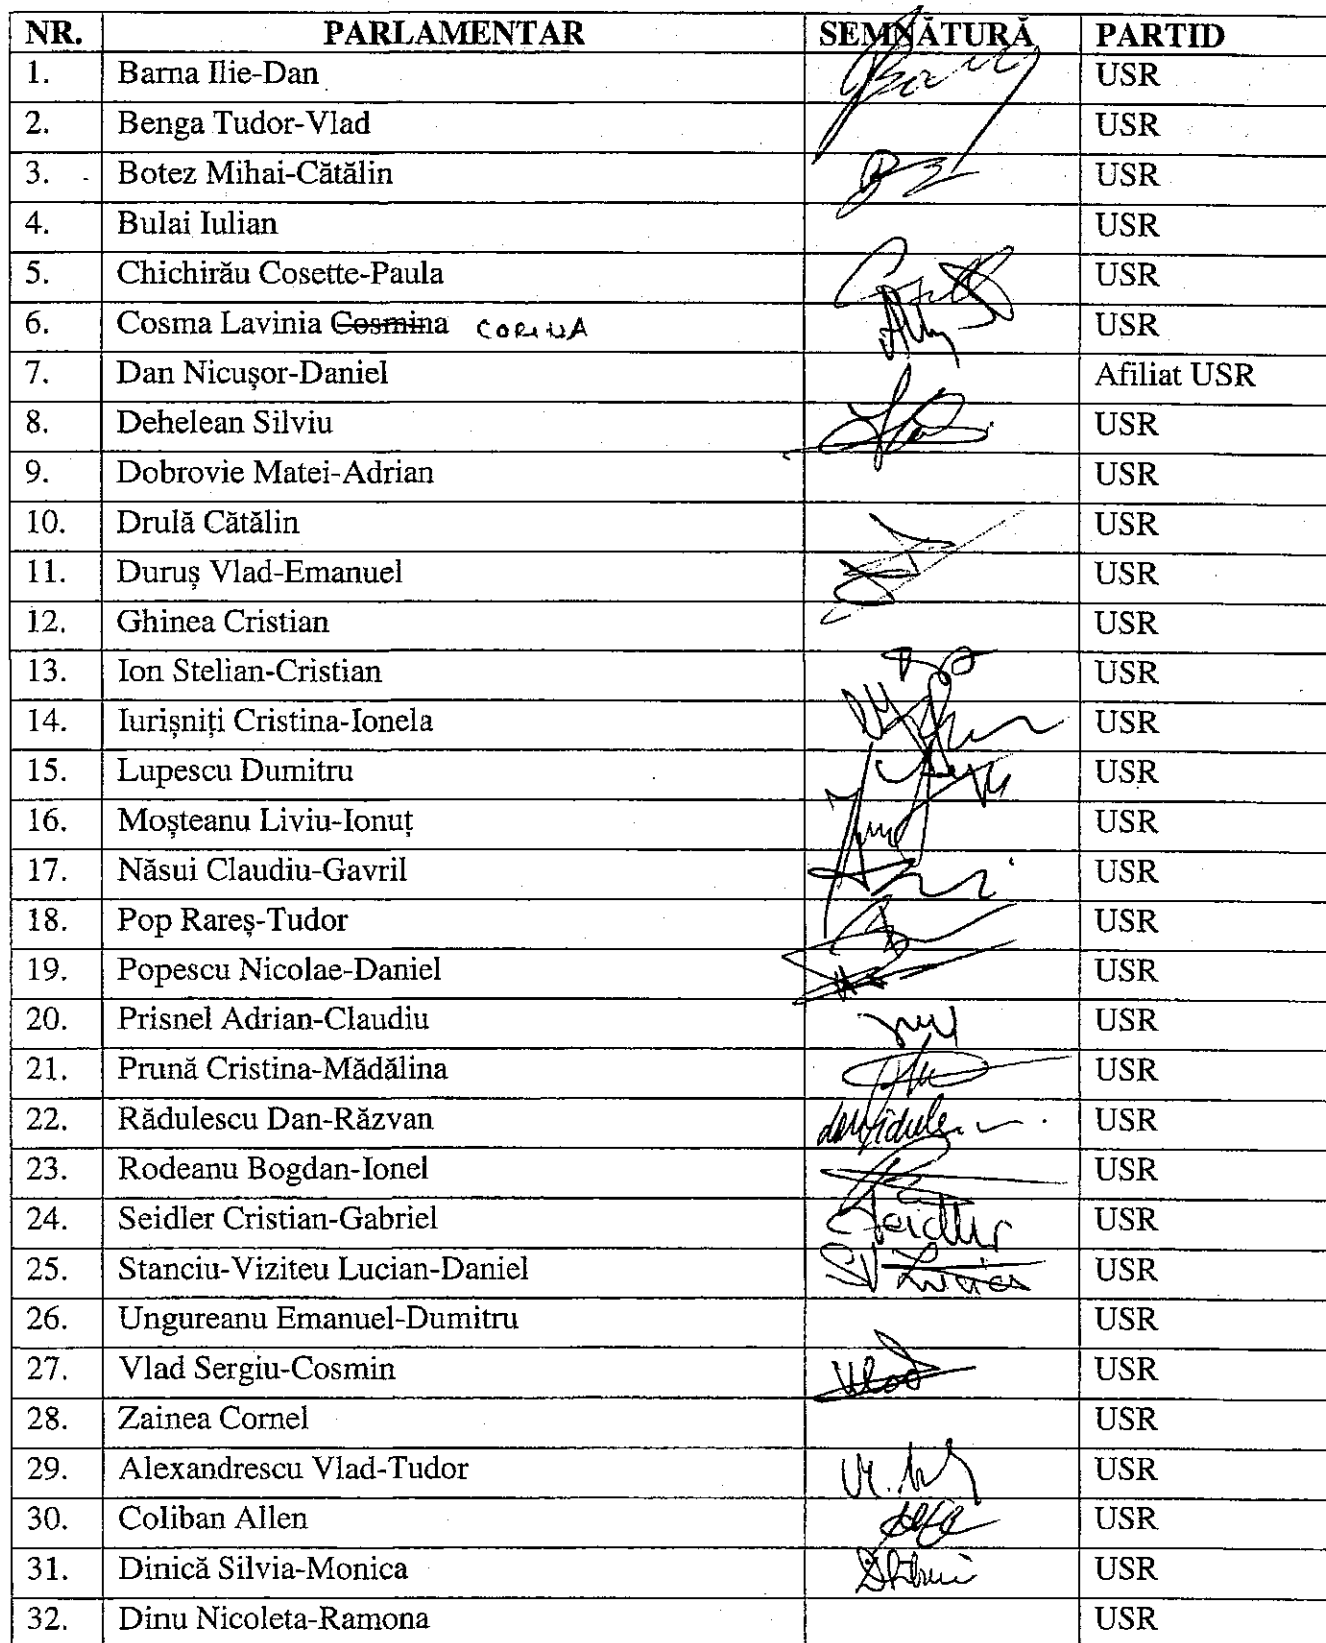 NR. PARLAMENTAR SEMNĂTURĂ PARTID
1. Barna Ilie-Dan USR
2. Benga Tudor-Vlad USR
3. Botez Mihai-Cătălin USR
4. Bulai Iulian USR
5. Chichirău Cosette-Paula USR
6. Cosma Lavinia Cosmina CORINA USR
7. Dan Nicușor-Daniel Afiliat USR
8. Dehelean Silviu USR
9. Dobrovie Matei-Adrian USR
10. Drulă Cătălin USR
11. Duruș Vlad-Emanuel USR
12. Ghinea Cristian USR
13. Ion Stelian-Cristian USR
14. Iurișniți Cristina-Ionela USR
15. Lupescu Dumitru USR
16. Moșteanu Liviu-Ionuț USR
17. Năsui Claudiu-Gavril USR
18. Pop Rareș-Tudor USR
19. Popescu Nicolae-Daniel USR
20. Prisnel Adrian-Claudiu USR
21. Prună Cristina-Mădălina USR
22. Rădulescu Dan-Răzvan USR
23. Rodeanu Bogdan-Ionel USR
24. Seidler Cristian-Gabriel Seidler USR
25. Stanciu-Viziteu Lucian-Daniel SV Lucian USR
26. Ungureanu Emanuel-Dumitru USR
27. Vlad Sergiu-Cosmin Vlad USR
28. Zainea Cornel USR
29. Alexandrescu Vlad-Tudor USR
30. Coliban Allen USR
31. Dinică Silvia-Monica USR
32. Dinu Nicoleta-Ramona USR